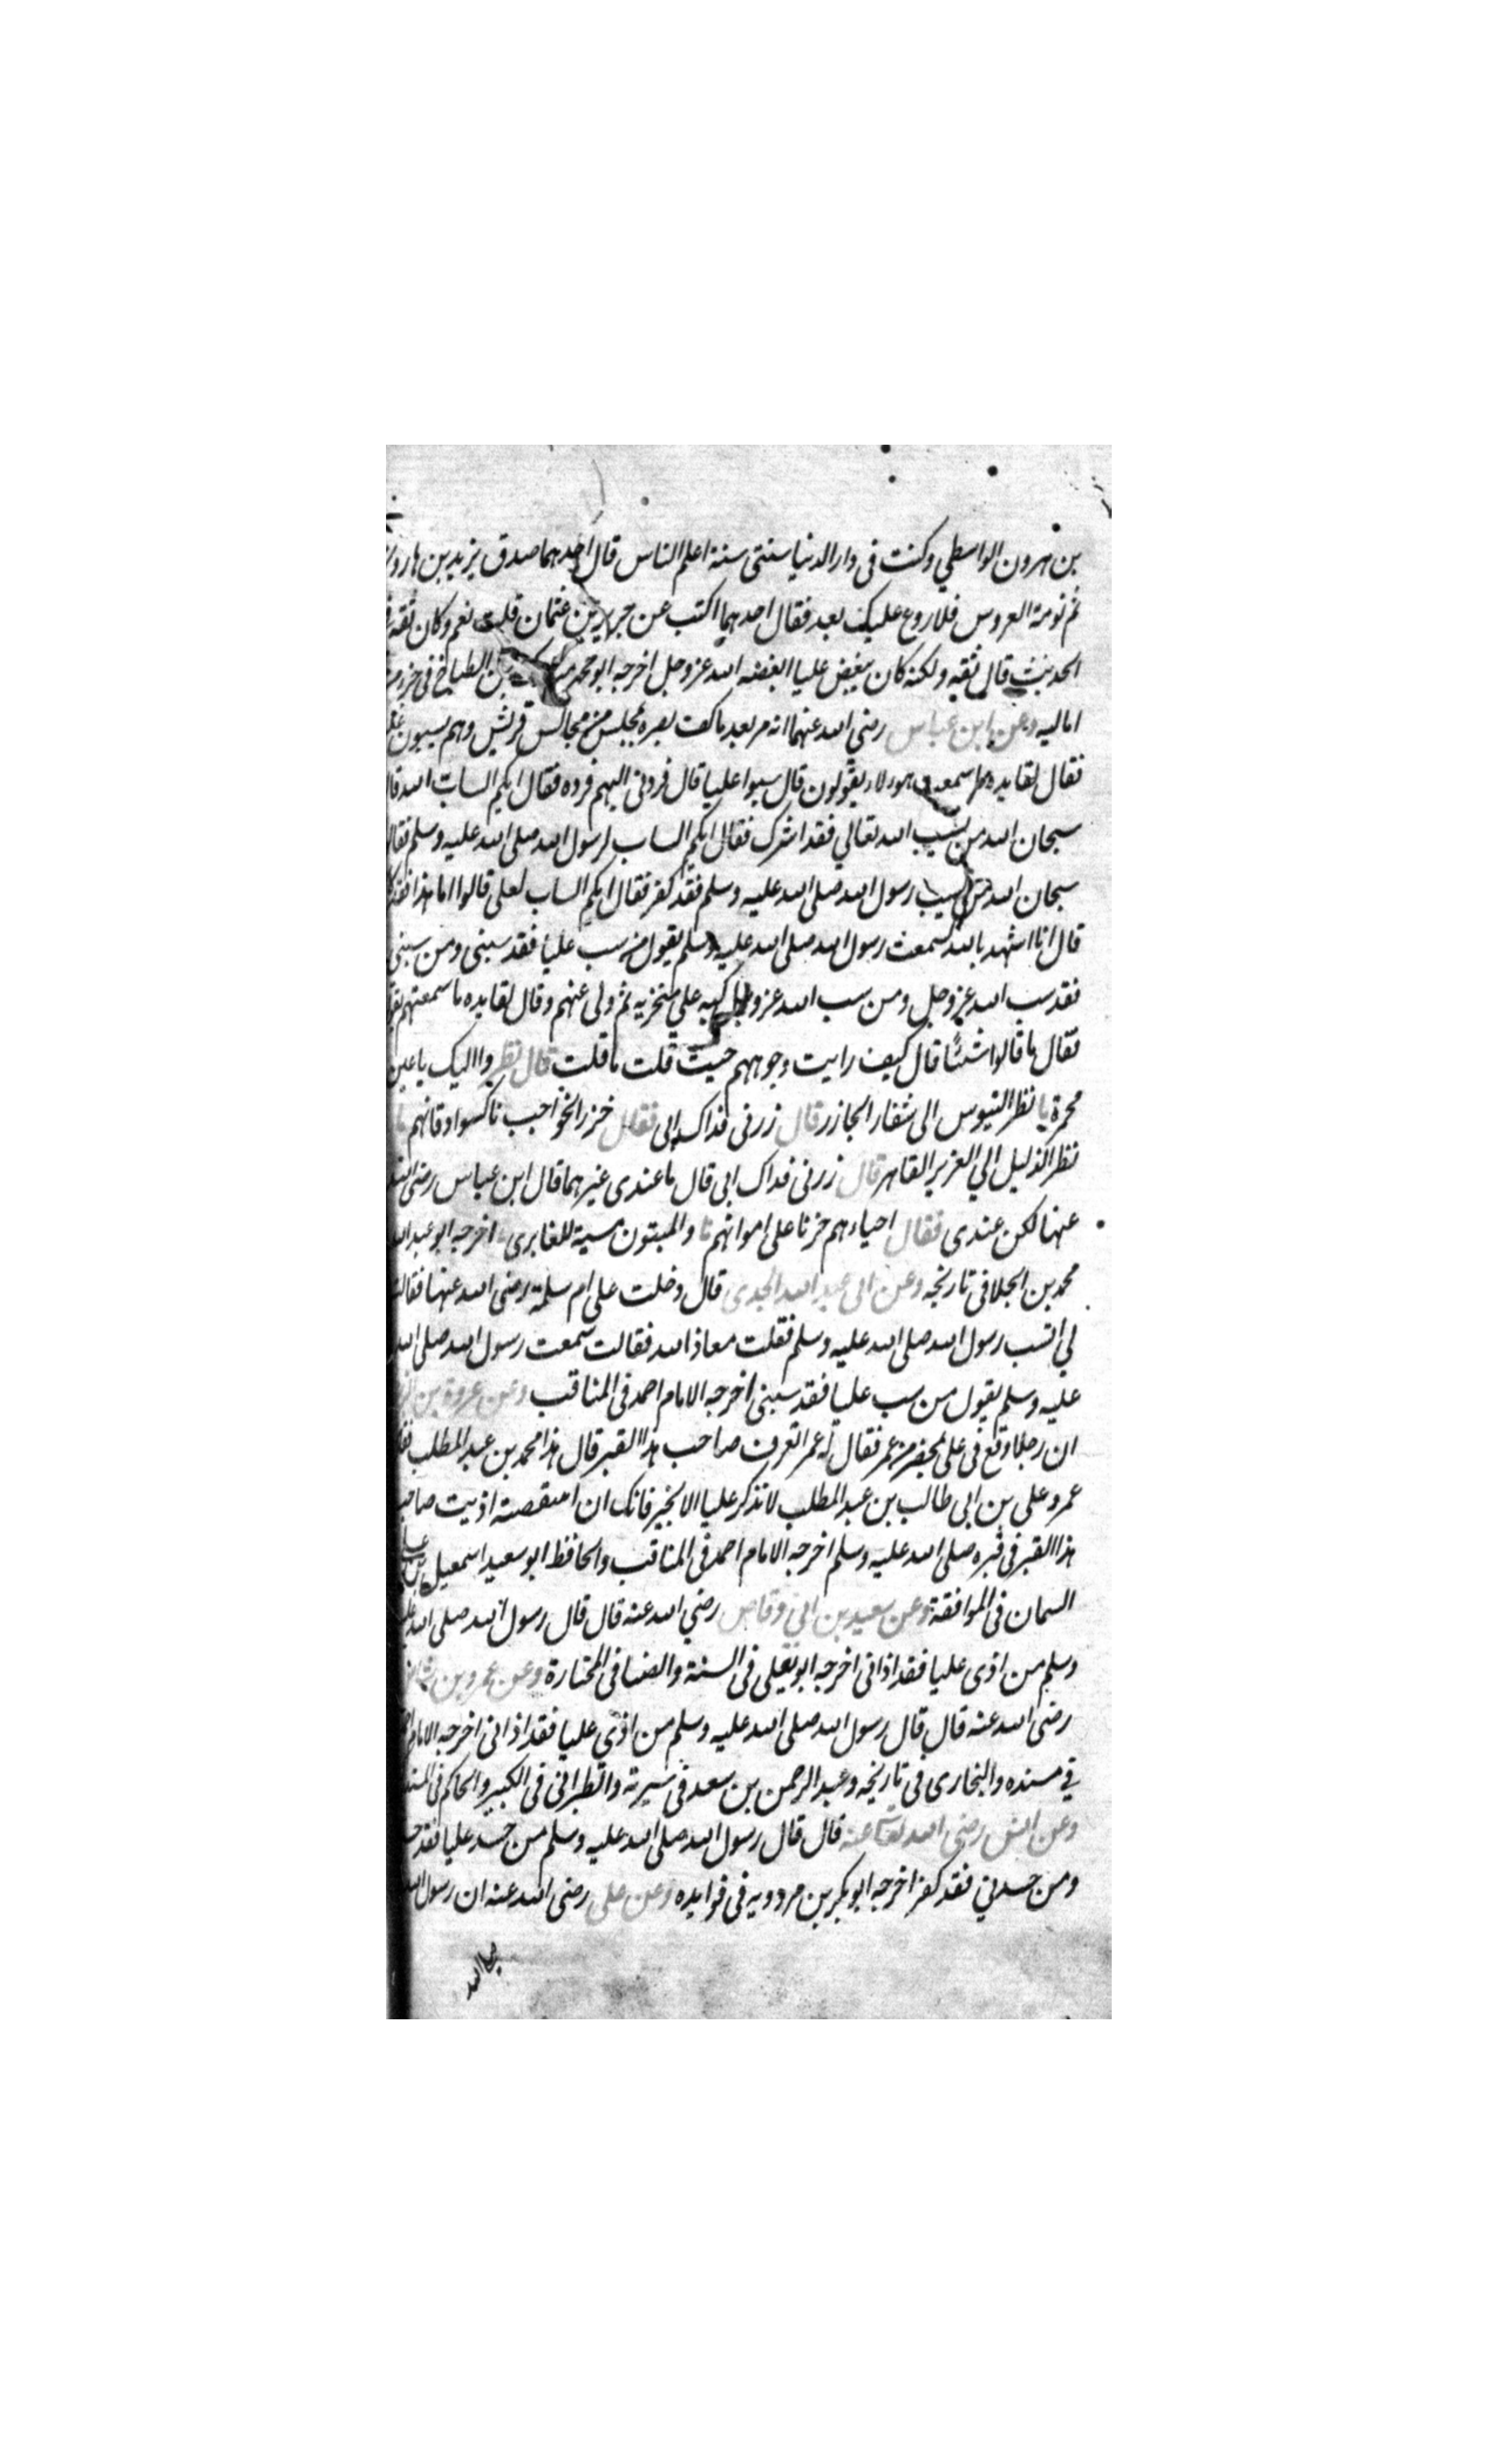 بن هرون الواسطي وكنت فى دار الدنيا سنتى سنة اعلم الناس قال احدهما صدق يزيد بن هارو
نم نومة العروس فلا روع عليك بعد فقال احدهما اكتب عن جرير بن عثمان قلت نعم وكان ثقة
الحديث قال ثقه ولكنه كان يبغض عليا ابغضه الله عز وجل اخرجه ابو محمد بن الطباخ فى
اماليه وعن ابن عباس رضي الله عنهما انه مر بعد ما كف بصره بمجلس من مجالس قريش وهم يسبون
فقال لقايده ما سمعت هولاء يقولون قال سبوا عليا قال فردنى اليهم فرده فقال ايكم الساب الله
سبحان الله من يسب الله تعالي فقد اشرك فقال ايكم الساب لرسول الله صلى الله عليه وسلم فقال
سبحان الله من يسب رسول الله صلى الله عليه وسلم فقد كفر فقال ايكم الساب لعلى قالوا اما هذا فقد
قال انا اشهد بالله لسمعت رسول الله صلى الله عليه وسلم يقول من سب عليا فقد سبنى ومن سبنى
فقد سب الله عز وجل ومن سب الله عز وجل كبه علي منخزيه ثم ولى عنهم وقال لقايده ما سمعتهم
فقال ما قالوا شئا قال كيف رايت وجوههم حيث قلت ما قلت قال نظروا اليك باعين
محمرة نظر التيوس الى شفار الجازر قال زرنى فداك ابى فقال خزر الحواجب ناكسوا اذقانهم
نظر الذليل الي العزيز القاهر قال زرنى فداك ابى قال ما عندى غيرهما قال ابن عباس رضى الله
عنها لكن عندى فقال احياءهم خزنا على امواتهم والميتون مسبة للغابرى اخرجه ابو عبد الله
محمد بن الجلا فى تاريخه وعن ابى عبد الله الجدى قال دخلت على ام سلمة رضى الله عنها فقالت
لي اتسب رسول الله صلى الله عليه وسلم فقلت معاذ الله فقالت سمعت رسول الله صلى الله
عليه وسلم يقول من سب عليا فقد سبنى اخرجه الامام احمد فى المناقب وعن عروة بن
ان رجلا وقع فى على بمحضر من عمر فقال له عمر اتعرف صاحب هذا القبر قال هذا محمد بن عبد المطلب
عمر وعلى بن ابى طالب بن عبد المطلب لا تذكر عليا الا بخير فانك ان انتقصته اذيت صاحب
هذا القبر فى قبره صلى الله عليه وسلم اخرجه الامام احمد فى المناقب والحافظ ابو سعيد اسمعيل
السمان فى الموافقة وعن سعيد بن ابي وقاص رضي الله عنه قال قال رسول الله صلى الله
وسلم من اذى عليا فقد اذانى اخرجه ابو يعلى فى السنة والضيا فى المختارة وعن عمرو بن
رضى الله عنه قال قال رسول الله صلى الله عليه وسلم من اذى عليا فقد اذانى اخرجه الامام
في مسنده والبخارى فى تاريخه وعبد الرحمن بن سعد فى سيرته والطبرانى فى الكبير والحاكم فى
وعن انس رضى الله عنه قال قال رسول الله صلى الله عليه وسلم من حسد عليا فقد
ومن حسدني فقد كفر اخرجه ابو بكر بن مردويه فى فوايده وعن على رضى الله عنه ان رسول الله